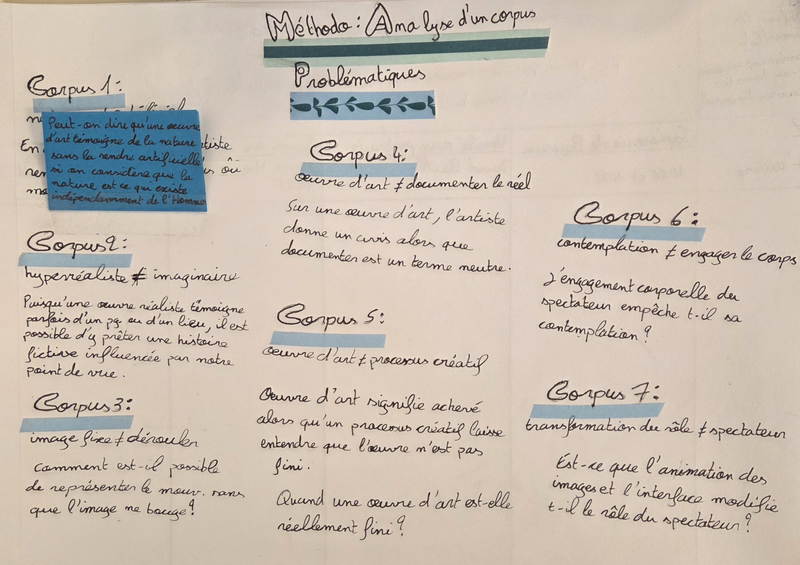 Méthodo : Analyse d'un corpus
Problématiques
Corpus 1 :
Peut-on dire qu'une œuvre
d'art témoigne de la nature
sans la rendre artificielle
si on considère que la
nature est ce qui existe
indépendamment de l'Homme
En
Corpus 2 :
hyperréaliste ≠ imaginaire
Puisqu'une œuvre réaliste témoigne
parfois d'un pg. ou d'un lieu, il est
possible d'y prêter une histoire
fictive influencée par notre
point de vue.
Corpus 3 :
image fixe ≠ dérouler
comment est-il possible
de représenter le mouv. sans
que l'image ne bouge ?
Corpus 4 :
œuvre d'art ≠ documenter le réel
Sur une œuvre d'art, l'artiste
donne un avis alors que
documenter est un terme neutre.
Corpus 5 :
œuvre d'art ≠ processus créatif
Œuvre d'art signifie achevé
alors qu'un processus créatif laisse
entendre que l'œuvre n'est pas
fini.
Quand une œuvre d'art est-elle
réellement fini ?
Corpus 6 :
contemplation ≠ engager le corps
L'engagement corporelle du
spectateur empêche t-il sa
contemplation ?
Corpus 7 :
transformation du rôle ≠ spectateur
Est-ce que l'animation des
images et l'interface modifie
t-il le rôle du spectateur ?